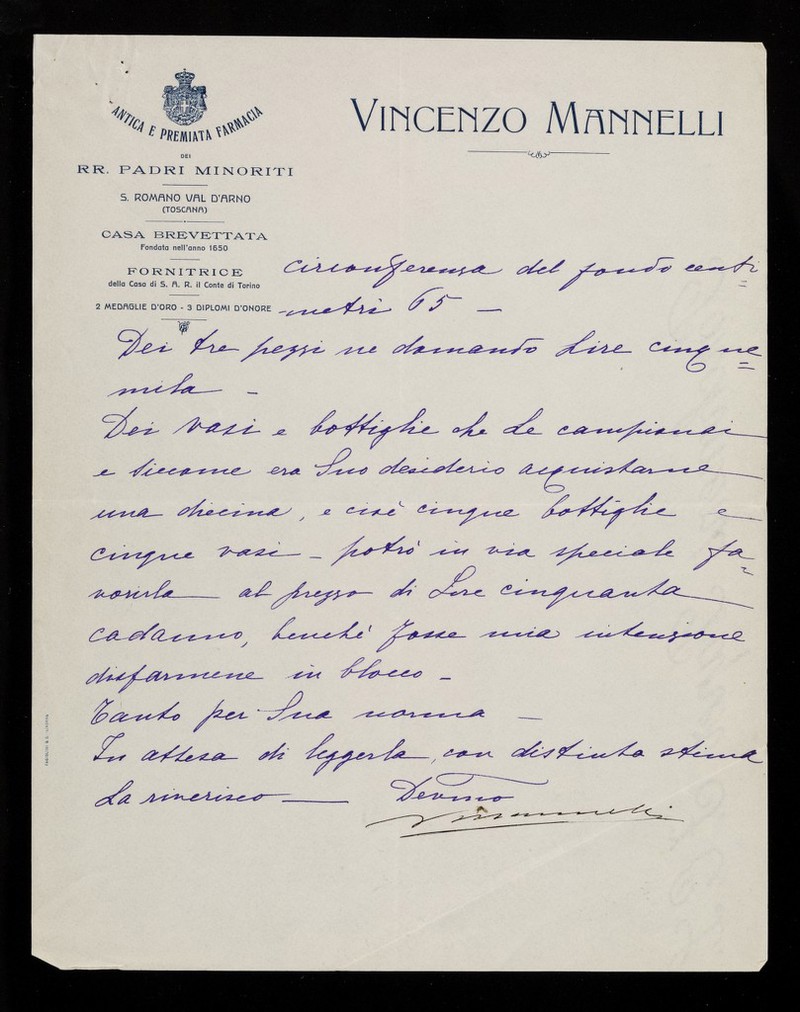 ANTICA E PREMIATA FARMACIA
DEI
RR. PADRI MINORITI
S. ROMANO VAL D'ARNO
(TOSCANA)
CASA BREVETTATA
Fondata nell'anno 1650
FORNITRICE
della Casa di S. A. R. il Conte di Torino
2 MEDAGLIE D'ORO - 3 DIPLOMI D'ONORE
VINCENZO MANNELLI
circonferenza del fondo centi=
metri 65 —
Dei tre pezzi ne domando Lire cinque=
mila —
Dei vasi e bottiglie che Le campionai
e siccome era Suo desiderio acquistarne
una diecina, e cioè cinque bottiglie e
cinque vasi — potrò in via speciale fa=
vorirla al prezzo di Lire cinquanta
cadauno, benché fosse mia intenzione
disfarmene in blocco —
Tanto per Sua norma —
In attesa di leggerla, con distinta stima
La riverisco — Devmo
VMannelli